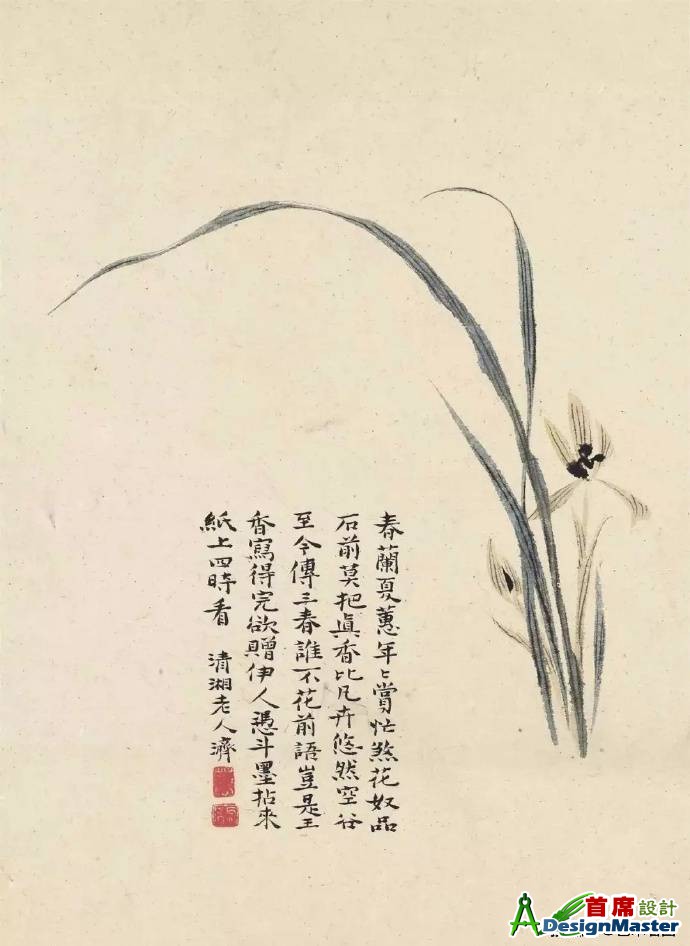 春蘭夏蕙年〻賞忙煞花奴品
石前莫把真香比凡卉悠然空谷
至今傳三春誰不花前語豈是王
香寫得完欲贈伊人憑斗墨拈來
紙上四時看 清湘老人濟
首席設計
DesignMaster